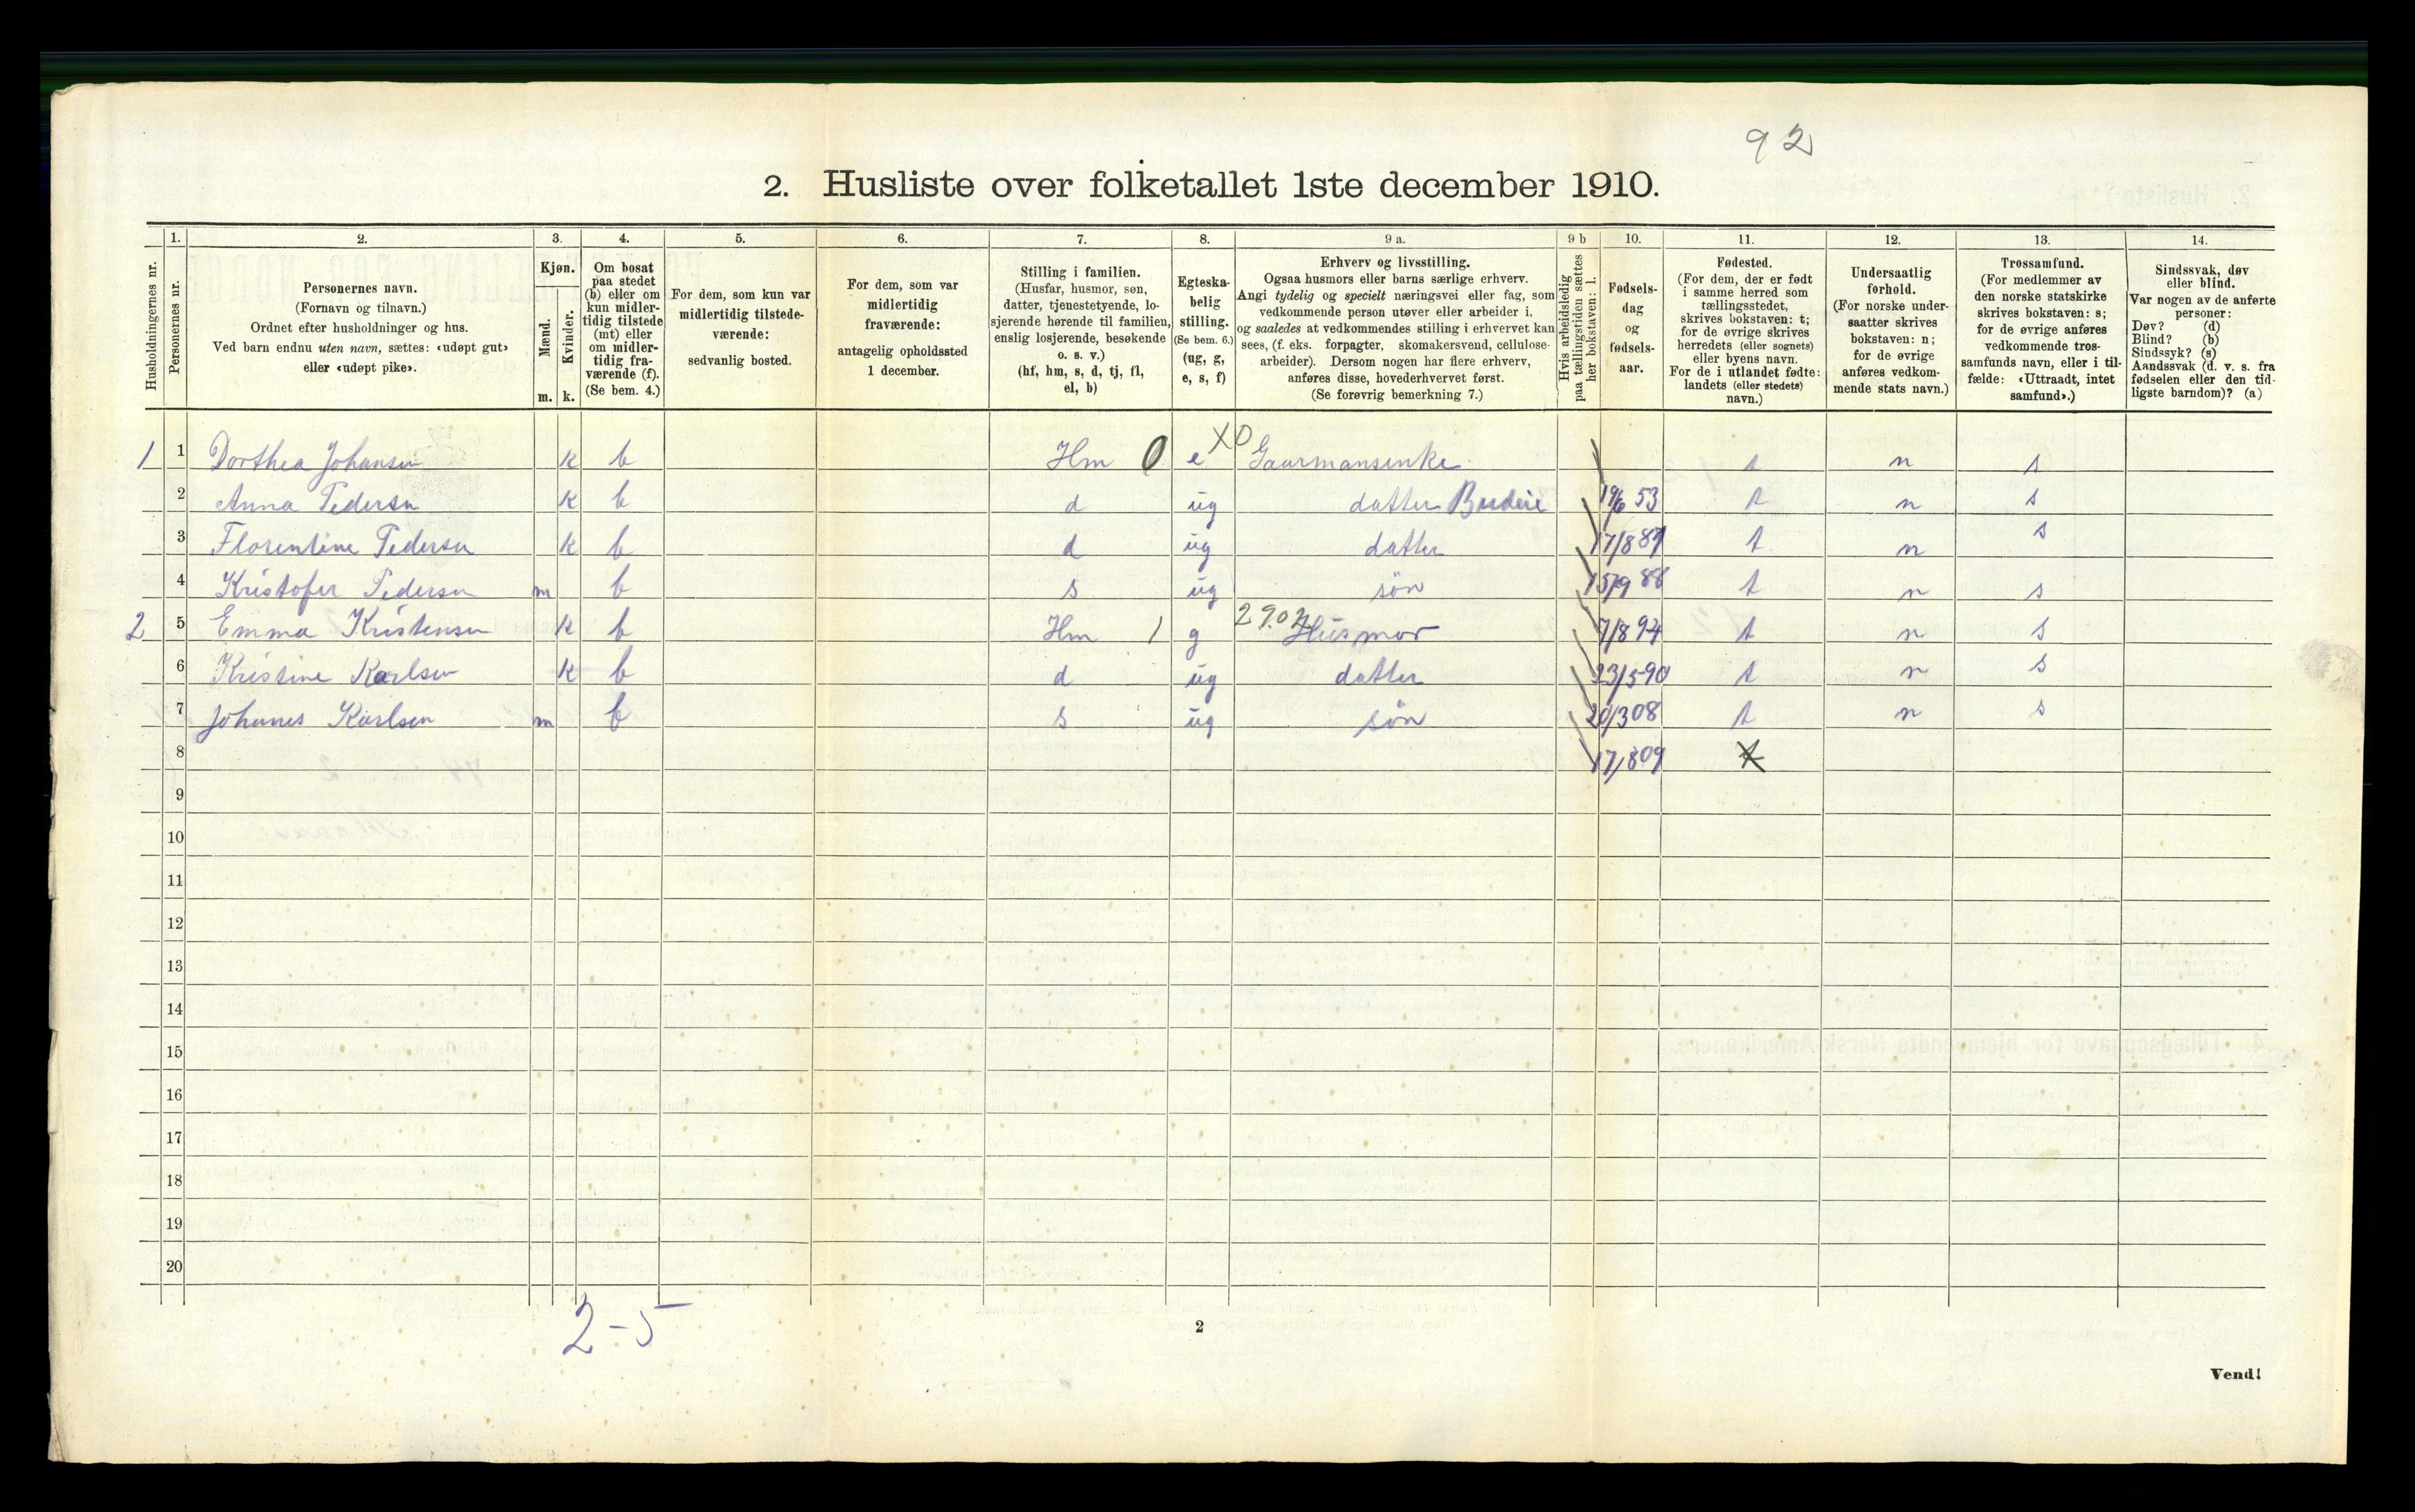 92
2. Husliste over folketallet 1ste december 1910.
Husholdningernes nr.
1. Personernes nr.
2. Personernes navn.
(Fornavn og tilnavn.)
Ordnet efter husholdninger og hus.
Ved barn endnu uten navn, sættes: «udøpt gut»
eller «udøpt pike».
3. Kjøn.
Mænd. Kvinder.
m. k.
4. Om bosat
paa stedet
(b) eller om
kun midler-
tidig tilstede
(mt) eller
om midler-
tidig fra-
værende (f).
(Se bem. 4.)
5. For dem, som kun var
midlertidig tilstede-
værende:
sedvanlig bosted.
6. For dem, som var
midlertidig
fraværende:
antagelig opholdssted
1 december.
7. Stilling i familien.
(Husfar, husmor, søn,
datter, tjenestetyende, lo-
sjerende hørende til familien,
enslig losjerende, besøkende
o. s. v.)
(hf, hm, s, d, tj, fl,
el, b)
8. Egteska-
belig
stilling.
(Se bem. 6.)
(ug, g,
e, s, f)
9 a. Erhverv og livsstilling.
Ogsaa husmors eller barns særlige erhverv.
Angi tydelig og specielt næringsvei eller fag, som
vedkommende person utøver eller arbeider i,
og saaledes at vedkommendes stilling i erhvervet kan
sees, (f. eks. forpagter, skomakersvend, cellulose-
arbeider). Dersom nogen har flere erhverv,
anføres disse, hovederhvervet først.
(Se forøvrig bemerkning 7.)
9 b Hvis arbeidsledig
paa tællingstiden sættes
her bokstaven: l.
10. Fødsels-
dag
og
fødsels-
aar.
11. Fødested.
(For dem, der er født
i samme herred som
tællingsstedet,
skrives bokstaven: t;
for de øvrige skrives
herredets (eller sognets)
eller byens navn.
For de i utlandet fødte:
landets (eller stedets)
navn.)
12. Undersaatlig
forhold.
(For norske under-
saatter skrives
bokstaven: n;
for de øvrige
anføres vedkom-
mende stats navn.)
13. Trossamfund.
(For medlemmer av
den norske statskirke
skrives bokstaven: s;
for de øvrige anføres
vedkommende tros-
samfunds navn, eller i til-
fælde: «Uttraadt, intet
samfund».)
14. Sindssvak, døv
eller blind.
Var nogen av de anførte
personer:
Døv? (d)
Blind? (b)
Sindssyk? (s)
Aandssvak (d. v. s. fra
fødselen eller den tid-
ligste barndom)? (a)
1 1 Dorthea Johansen k b Hm 0 e X0 Gaurmansenke t n s
2 Anna Pedersen k b d ug datter Budeie 19/6 53 t n s
3 Florentine Pedersen k b d ug datter 17/8 t n s
4 Kristofer Pedersen m b s ug sön 15/9 88 t n s
2 5 Emma Kristensen k b Hm 1 g Husmor 7/8 94 t n s
6 Kristine Karlsen k b d ug datter 23/5 90 t n s
7 Johanes Karlsen m b s ug sön 20/3 08 t n s
8 17/8 09 t
9
10
11
12
13
14
15
16
17
18
19
20
2-5
2
Vend!